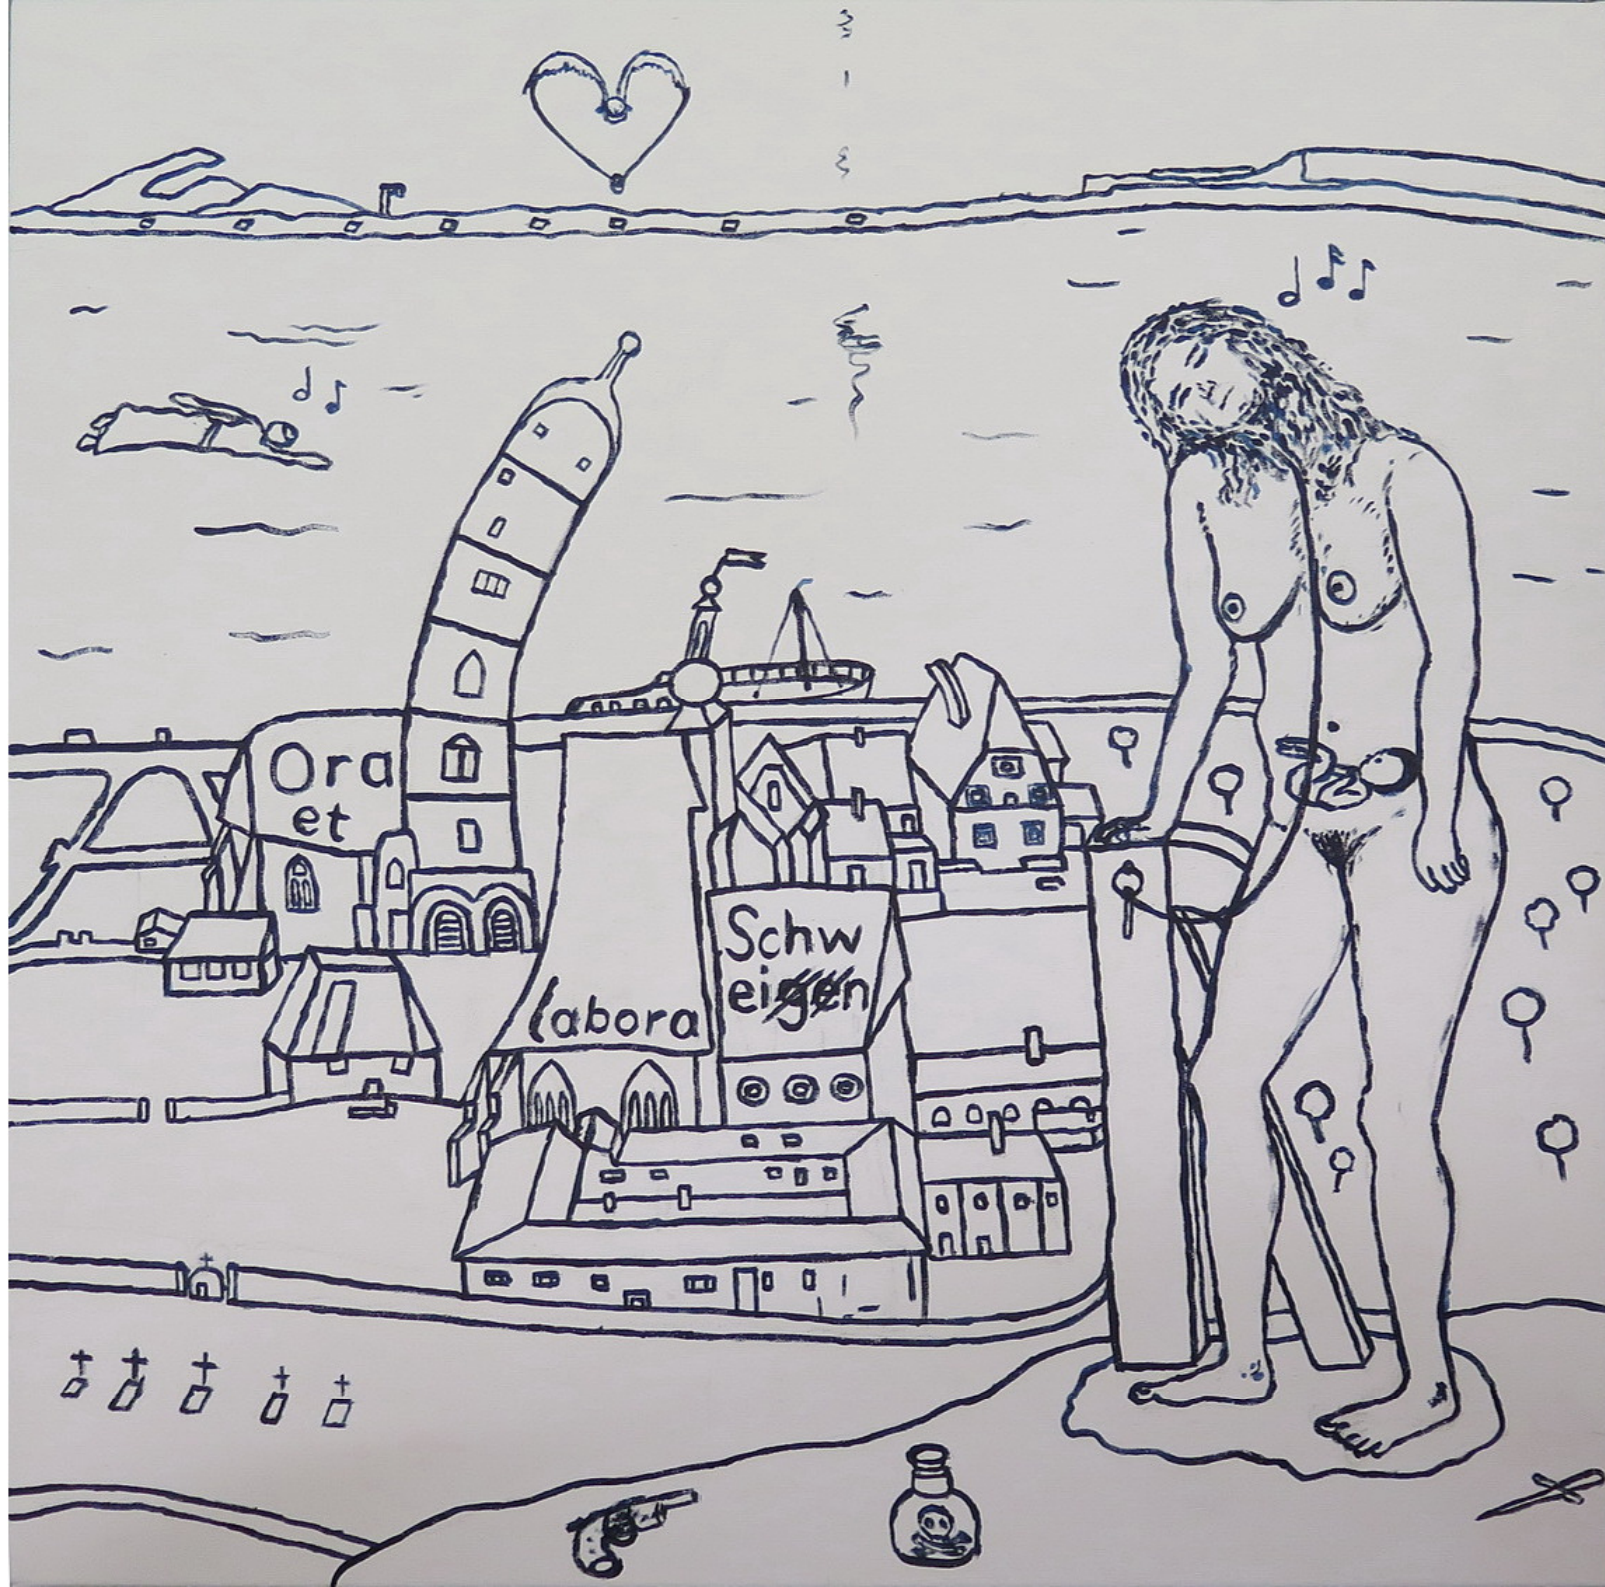 Ora
et
labora
Schw
eigen